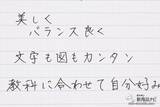 美しく
バランス良く
文字も図もカンタン
教科に合わせて自分好み